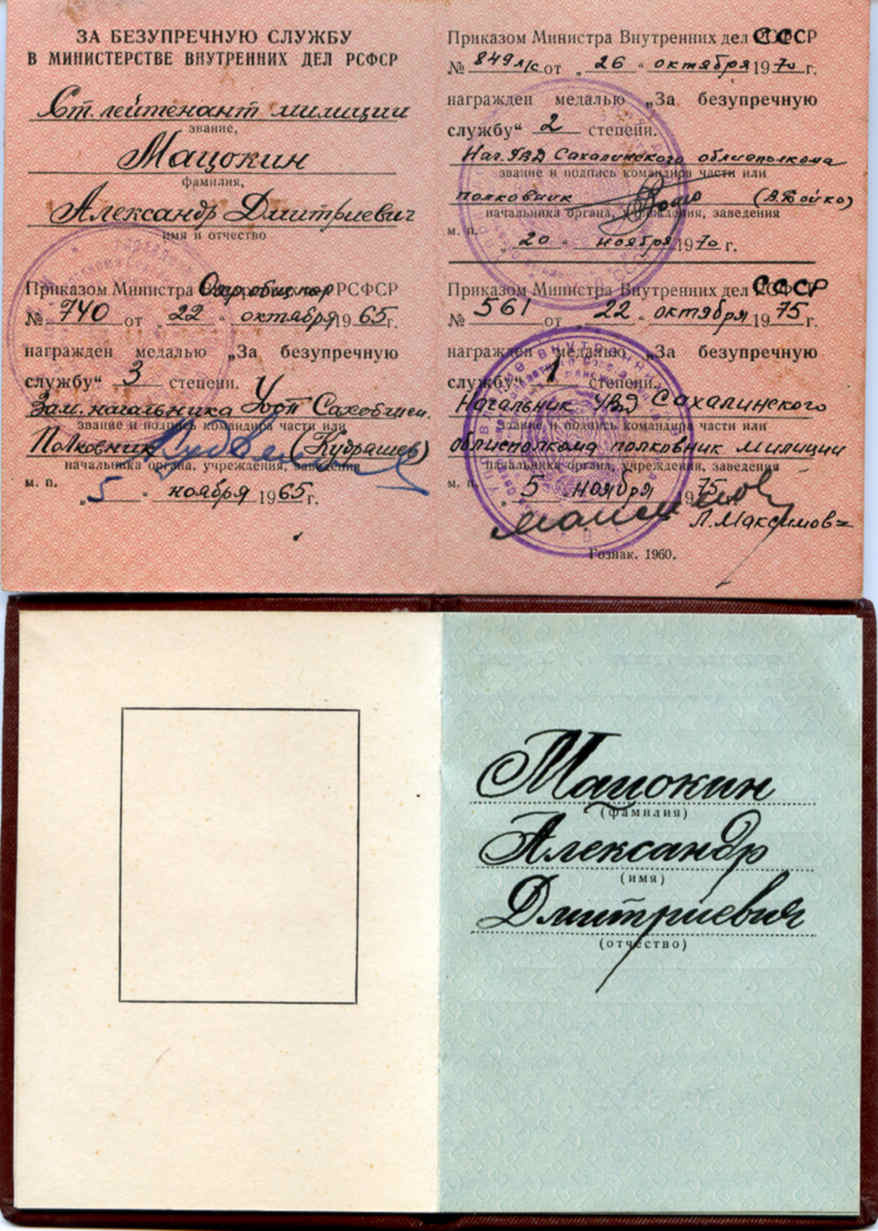 ЗА БЕЗУПРЕЧНУЮ СЛУЖБУ
В МИНИСТЕРСТВЕ ВНУТРЕННИХ ДЕЛ РСФСР
Ст. лейтенант милиции
звание,
Мацокин
фамилия,
Александр Дмитриевич
имя и отчество
Приказом Министра РСФСР
№ 740 от „22" октября 1965 г.
награжден медалью „За безупречную
службу" 3 степени.
Зам. начальника
звание и подпись командира части или
Полковник (Кудрашев)
начальника органа, учреждения, заведения
м. п.
„5" ноября 1965 г.
Приказом Министра Внутренних дел СССР
№ 849 л/с от „26" октября 1970 г.
награжден медалью „За безупречную
службу" 2 степени.
Нач. УВД Сахалинского облисполкома
звание и подпись командира части или
полковник (А. Бойко)
начальника органа, учреждения, заведения
м. п.
„20" ноября 1970 г.
Приказом Министра Внутренних дел СССР
№ 561 от „22" октября 1975 г.
награжден медалью „За безупречную
службу" 1 степени.
Начальник УВД Сахалинского
звание и подпись командира части или
облисполкома полковник милиции
начальника органа, учреждения, заведения
м. п.
5 ноября 1975 г.
Л. Максимов
Гознак. 1960.
Мацокин
(фамилия)
Александр
(имя)
Дмитриевич
(отчество)